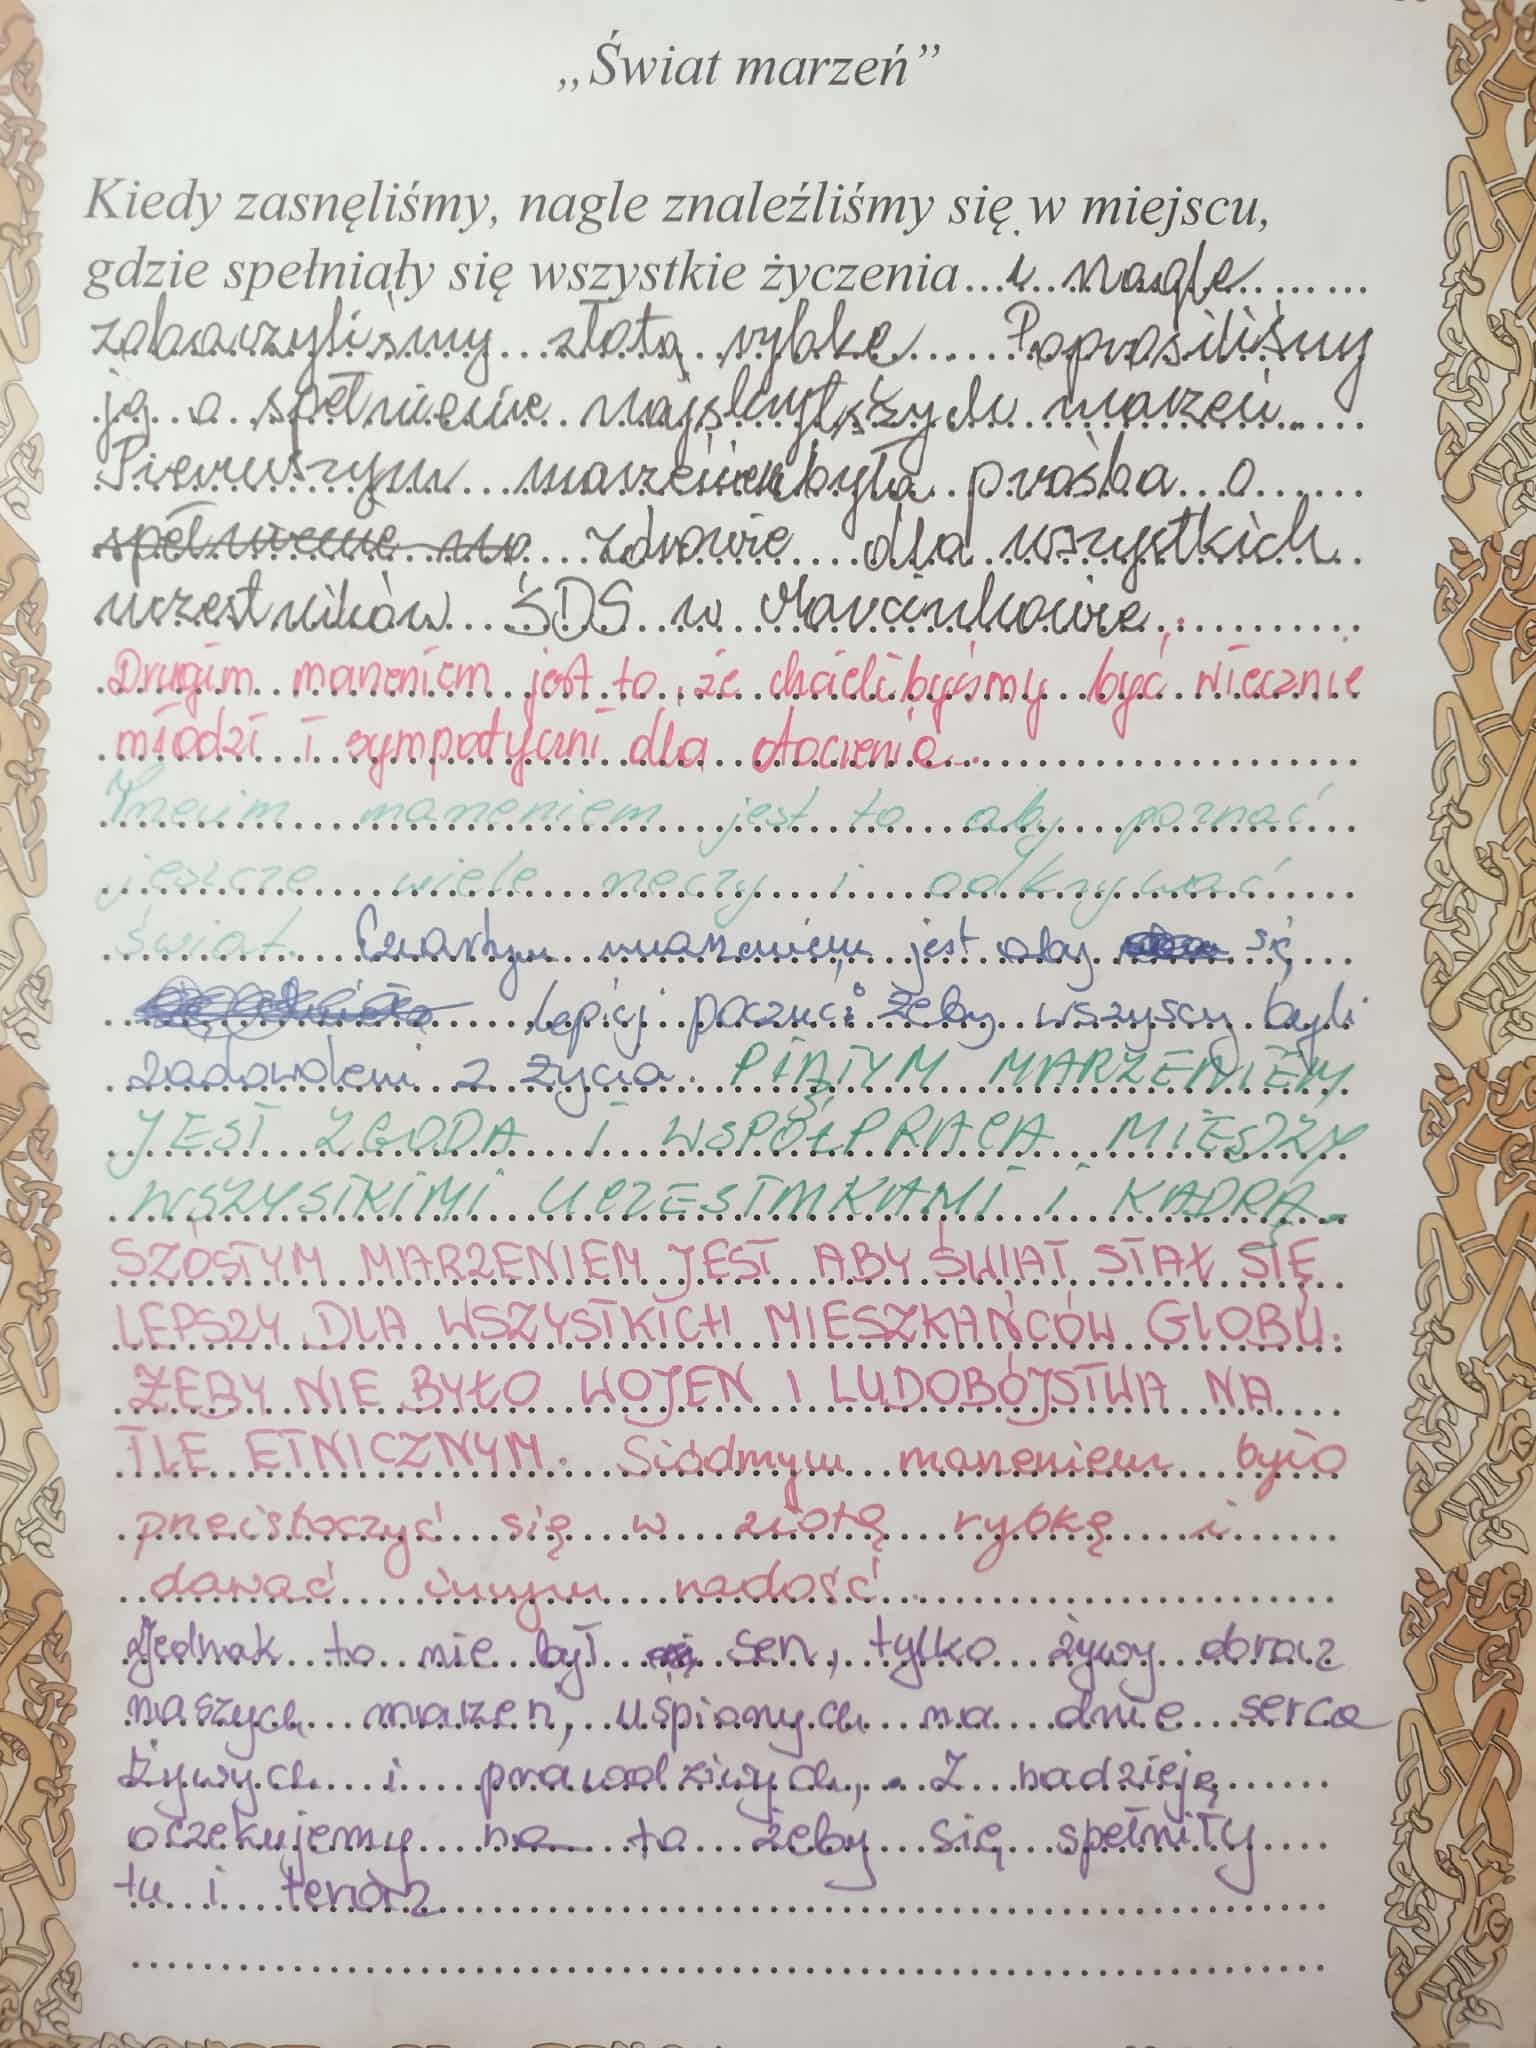 „Świat marzeń”
Kiedy zasnęliśmy, nagle znaleźliśmy się w miejscu,
gdzie spełniały się wszystkie życzenia... i nagle
zobaczyliśmy złotą rybkę. Poprosiliśmy
ją o spełnienie najskrytszych marzeń.
Pierwszym marzeniem była prośba o
zdrowie dla wszystkich
uczestników ŚDS w Marcinkowie.
Drugim marzeniem jest to, że chcielibyśmy być wiecznie
młodzi i sympatyczni dla otoczenia.
Trzecim marzeniem jest to aby poznać
jeszcze wiele rzeczy i odkrywać
świat. Czwartym marzeniem jest aby się
lepiej poczuć i żeby wszyscy byli
zadowoleni z życia. PIĄTYM MARZENIEM
JEST ZGODA I WSPÓŁPRACA MIĘDZY
WSZYSTKIMI UCZESTNIKAMI I KADRĄ.
SZÓSTYM MARZENIEM JEST ABY ŚWIAT STAŁ SIĘ
LEPSZY DLA WSZYSTKICH MIESZKAŃCÓW GLOBU.
ŻEBY NIE BYŁO WOJEN I LUDOBÓJSTWA NA
TLE ETNICZNYM. Siódmym marzeniem było
przeistoczyć się w złotą rybkę i
dawać innym radość.
Jednak to nie był sen, tylko żywy obraz
naszych marzeń, uśpionych na dnie serca
żywych i prawdziwych. Z nadzieją
oczekujemy na to żeby się spełniły
tu i teraz